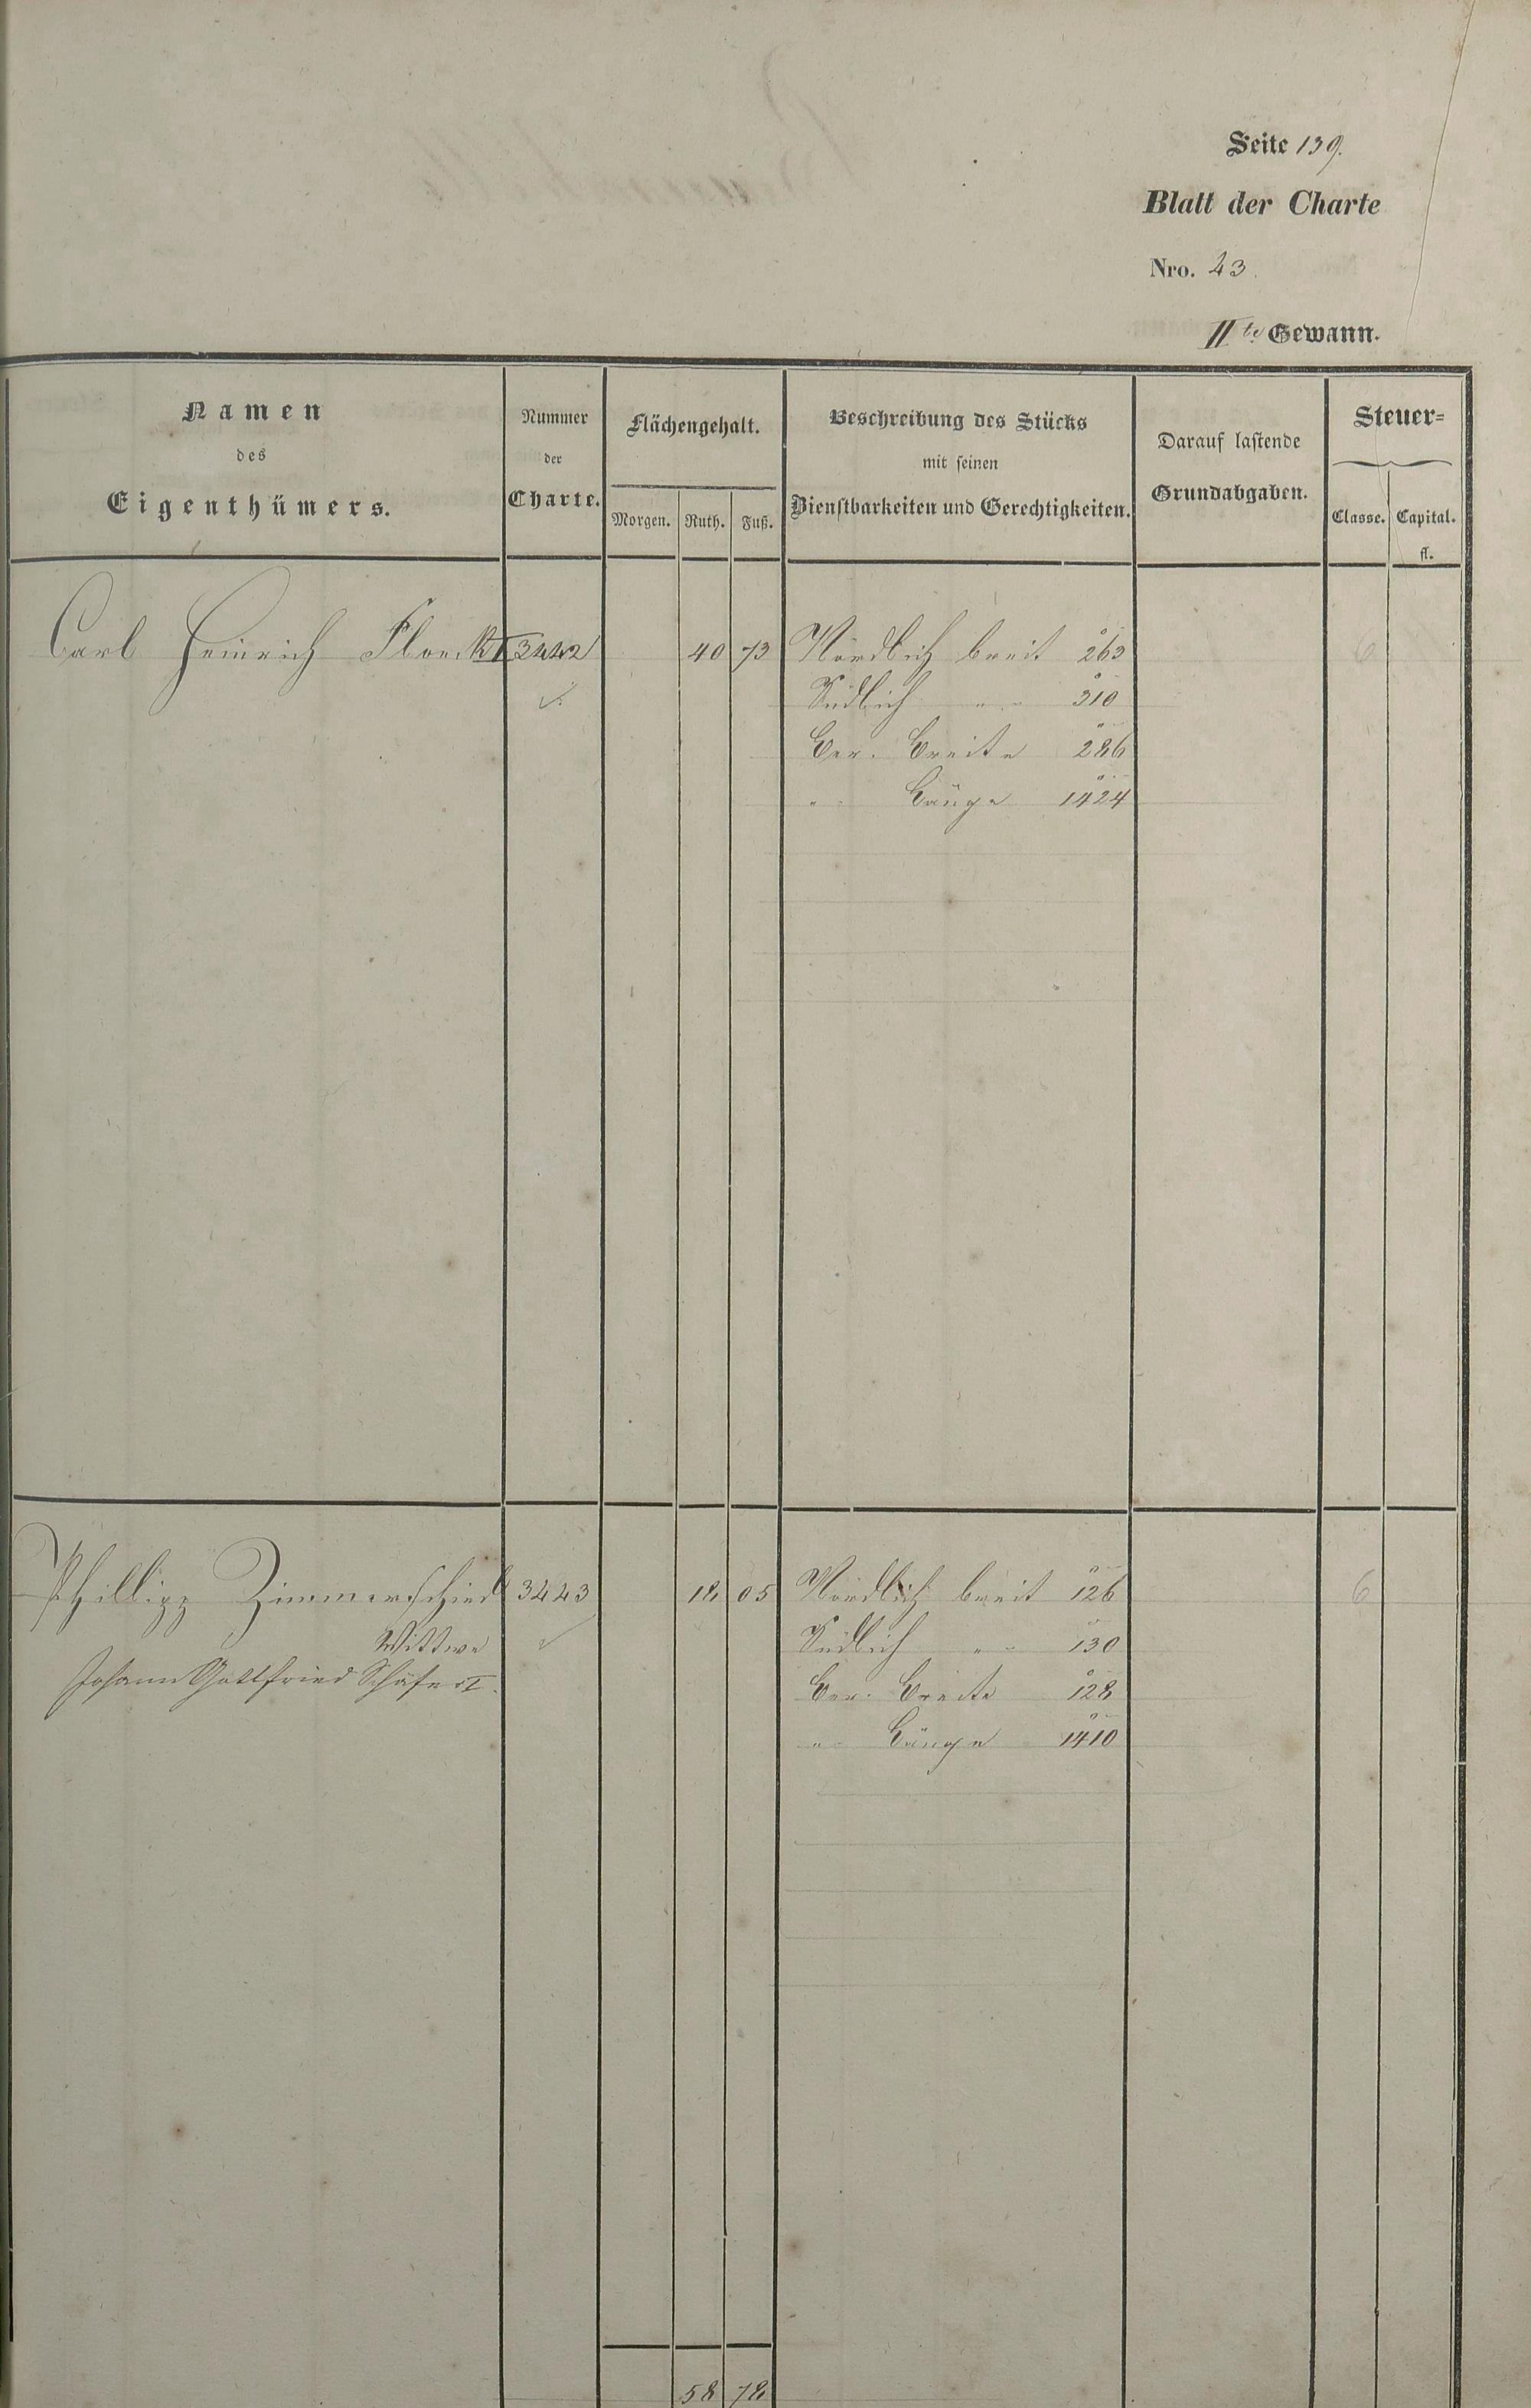 Seite 139.
Blatt der Charte
Nro. 43.
IIte Gewann.
Namen
des
Eigenthümers.
Nummer
der
Charte.
Flächengehalt.
Morgen. Ruth. Fuß.
Beschreibung des Stücks
mit seinen
Dienstbarkeiten und Gerechtigkeiten.
Darauf lastende
Grundabgaben.
Steuer=
Classe. Capital.
fl.
Carl Heinrich Floeck I 3442 40 73 Nördlich breit 263 6
Südlich " 310
Ber. Breite 286
" Länge 1424
Phillipp Zimmerschied 3443 18 05 Nördlich breit 126 6
Wittwe Südlich " 130
Johann Gottfried Schäfer I. Ber. Breite 128
" Länge 1410
58 78